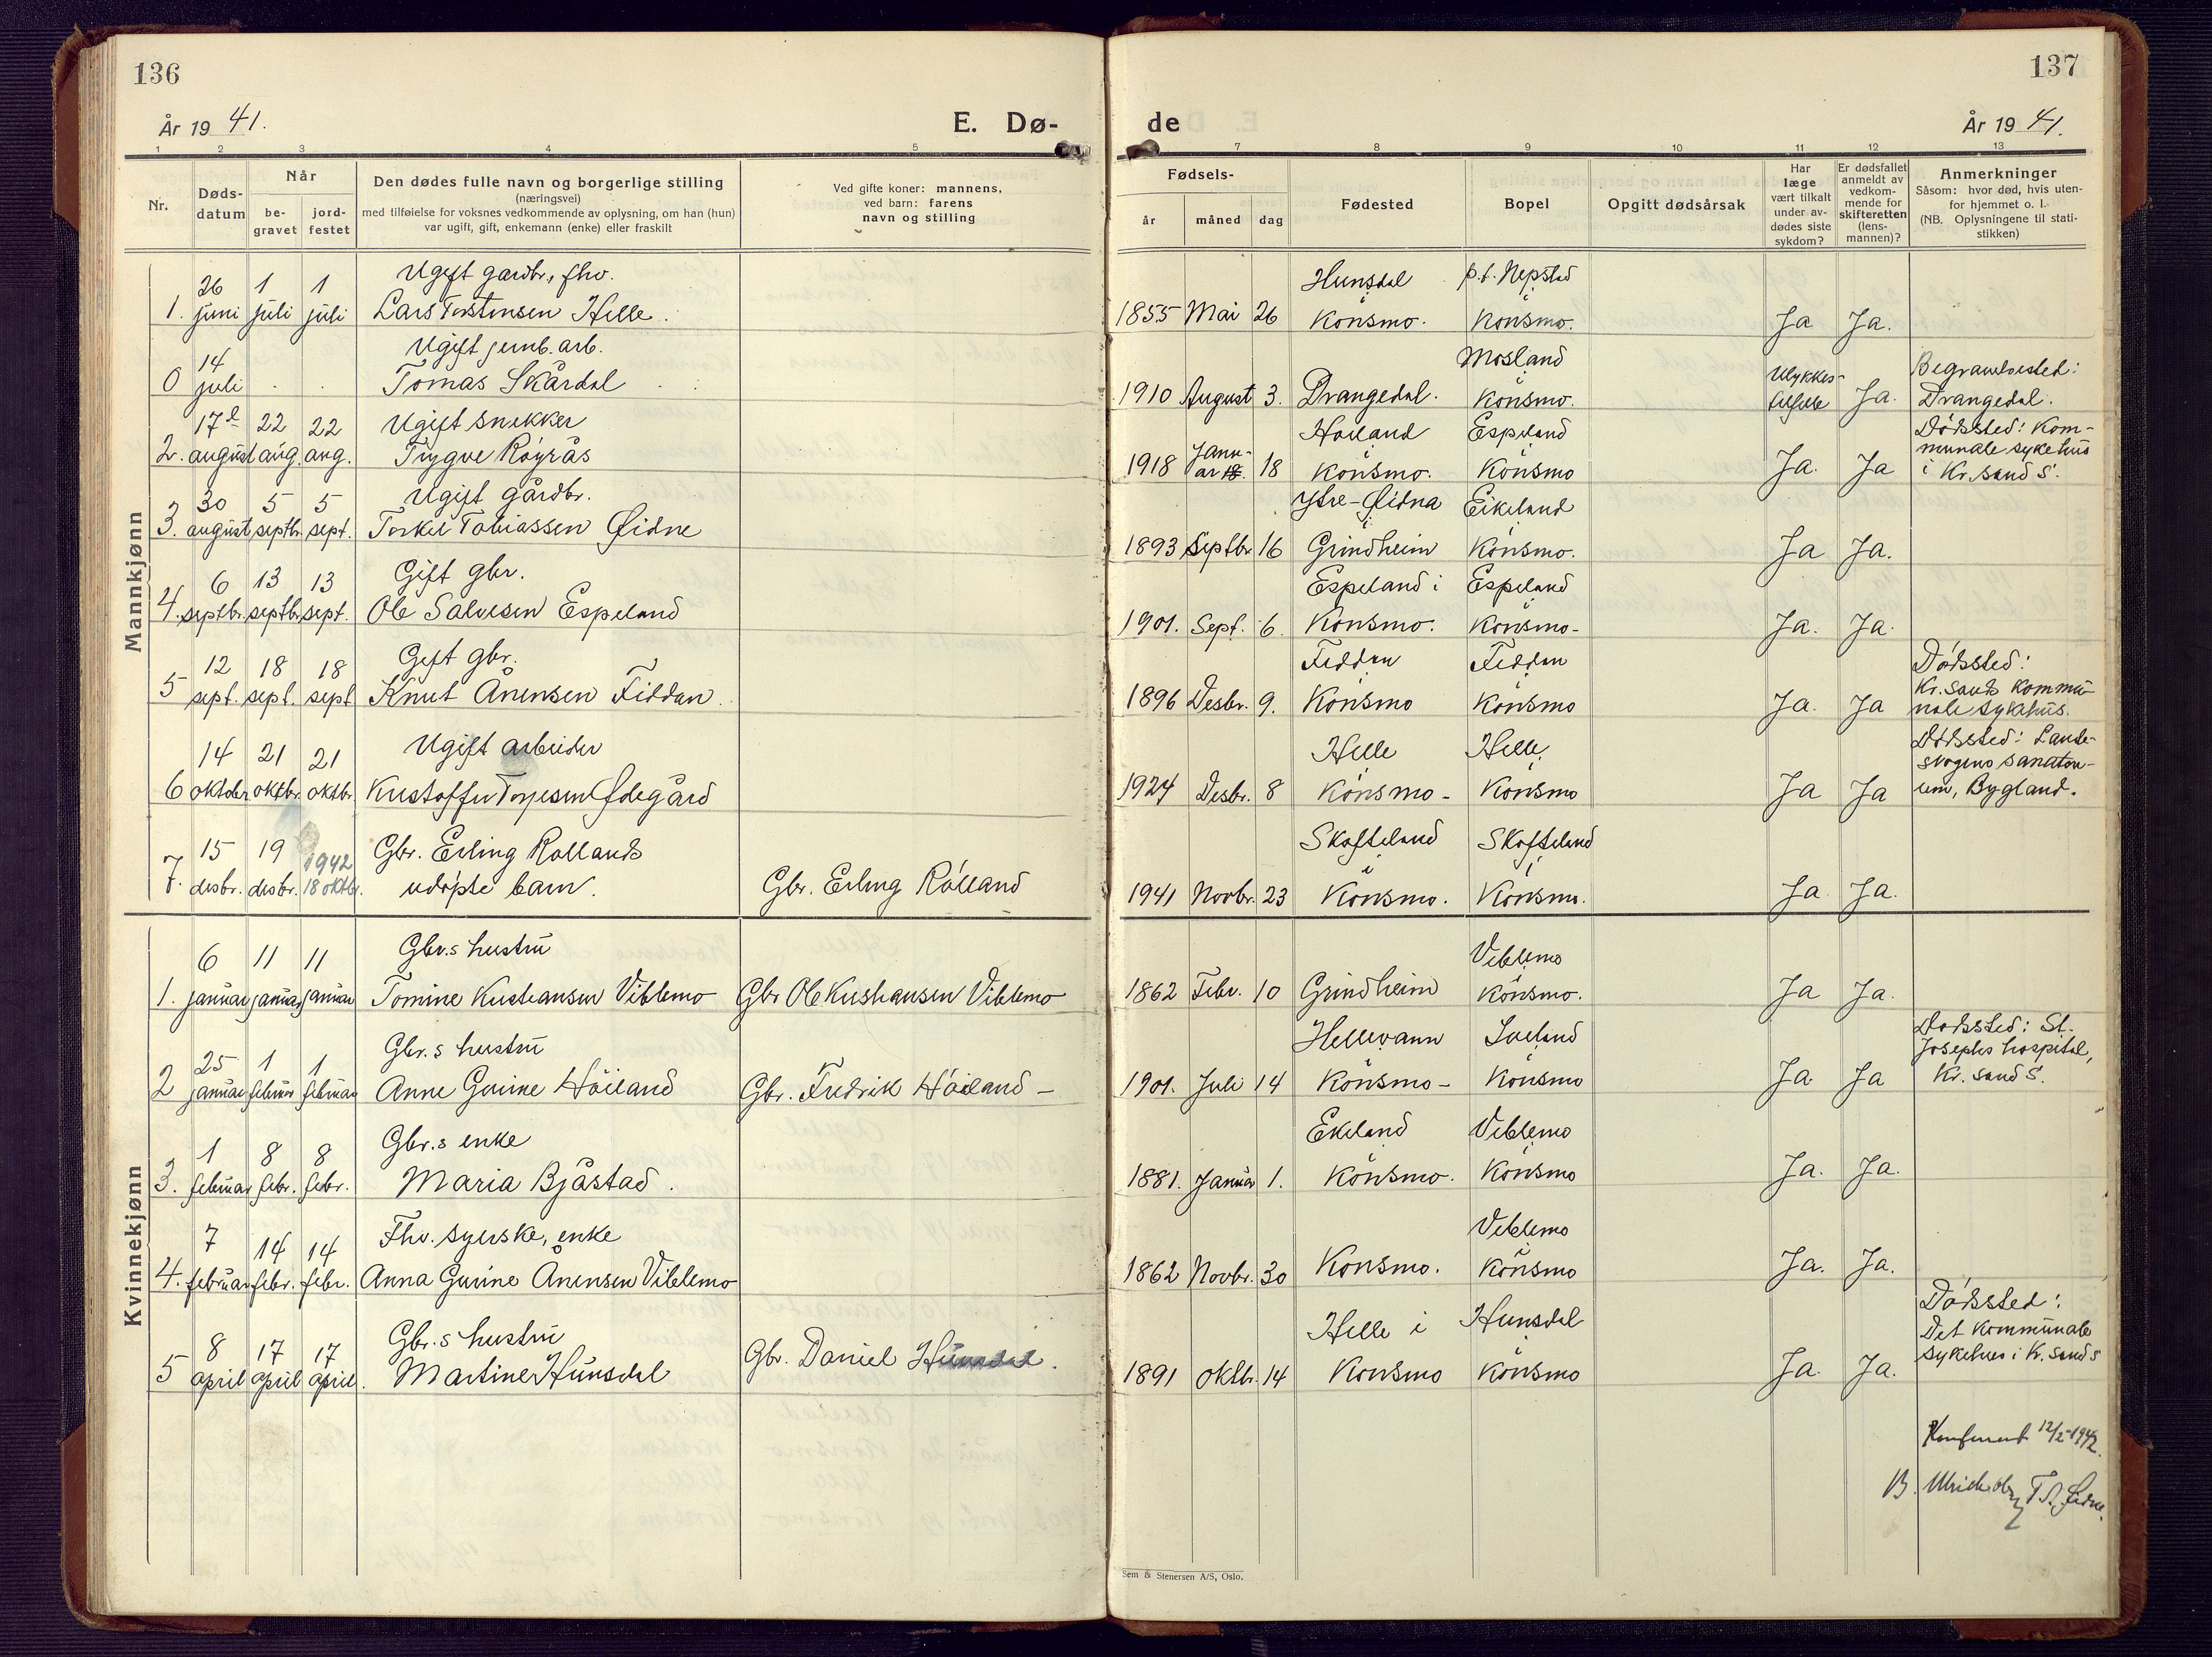 136
År 1941.
E. Dø-
1 2 3 4 5
Nr.
Døds-
datum
Når
be-
gravet
jord-
festet
Den dødes fulle navn og borgerlige stilling
(næringsvei)
med tilføielse for voksnes vedkommende av oplysning, om han (hun)
var ugift, gift, enkemann (enke) eller fraskilt
Ved gifte koner: mannens,
ved barn: farens
navn og stilling
Mannkjønn
26 1 1 Ugift gardbr., fhv.
1. juni juli juli Lars Torstensen Helle.
14 Ugift jernb. arb.
0 juli . . Tomas Skårdal
17de 22 22 Ugift snekker
2. august aug. aug. Trygve Röyrås
30 5 5 Ugift gårdbr.
3. august septbr. sept. Torkel Tobiassen Øidne
6 13 13 Gift gbr.
4. septbr. septbr. sept. Ole Salvesen Espeland
12 18 18 Gift gbr.
5 sept. sept. sept Knut Ånensen Fiddan.
14 21 21 Ugift arbeider
6 oktober oktbr. oktbr. Kristoffer Terjesen Ødegård
15 19 1942 Gbr. Erling Röllands
7. desbr. desbr. 18 oktbr. udöpte barn. Gbr. Erling Rölland
Kvinnekjønn
6 11 11 Gbr.s hustru
1. januar januar januar Tomine Kristiansen Viblemo Gbr Ole Kristiansen Viblemo
25 1 1 Gbr.s hustru
2 januar februar februar Anne Gurine Höiland Gbr. Fredrik Höiland –
1 8 8 Gbr.s enke
3. februar febr. febr. Maria Bjåstad.
7 14 14 Fhv. syerske, enke
4. februar febr. febr. Anna Gurine Ånensen Viblemo
8 17 17 Gbr.s hustru
5 april april april. Martine Hunsdal Gbr. Daniel Hunsdal.
137
de
År 1941.
7 8 9 10 11 12 13
Fødsels-
år måned dag
Fødested
Bopel
Opgitt dødsårsak
Har
læge
vært tilkalt
under av-
dødes siste
sykdom?
Er dødsfallet
anmeldt av
vedkom-
mende for
skifteretten
(lens-
mannen)?
Anmerkninger
Såsom: hvor død, hvis uten-
for hjemmet o. l.
(NB. Oplysningene til stati-
stikken)
Hunsdal p.t. Nepstad
i i
1855 Mai 26 Konsmo. Konsmo. Ja Ja.
Mosland Ulykkes- Begravelsessted:
i
1910 August 3. Drangedal. Konsmo. tilfelle Ja. Drangedal.
Höiland Espeland Dödssted: Kom-
Janu- munale sykehus
1918 ar 18. 18 Konsmo. Konsmo Ja. Ja i Kr.sand S.
Ytre-Øidna Eikeland
i
1893 Septbr 16 Grindheim Konsmo. Ja Ja.
Espeland i Espeland
1901. Sept. 6. Konsmo. Konsmo- Ja. Ja.
Fiddan Fiddan Dödssted:
Kr. sands kommu-
1896 Desbr. 9. Konsmo Konsmo Ja. Ja nale sykehus.
Helle Helle Dödssted: Lande-
skogens sanatori-
1924 Desbr. 8 Konsmo – Konsmo Ja Ja um, Bygland.
Skofteland Skofteland
i i
1941 Novbr. 23 Konsmo. Konsmo. Ja Ja.
Viblemo
1862 Febr. 10 Grindheim Konsmo. Ja Ja.
Hellevann Dødssted: St.
Josephs hospital,
1901. Juli 14 Konsmo – Konsmo Ja Ja Kr. sand S.
Ekeland Viblemo
1881. Januar 1. Konsmo. Konsmo Ja. Ja.
Viblemo
1862 Novbr. 30 Konsmo. Konsmo Ja. Ja.
Helle i Hunsdal Dödssted:
Det kommunale
sykehus i Kr. sand S
1891 oktbr. 14 Konsmo Konsmo Ja. Ja.
Konferert 12/2-1942.
Sem & Stenersen A/S, Oslo.